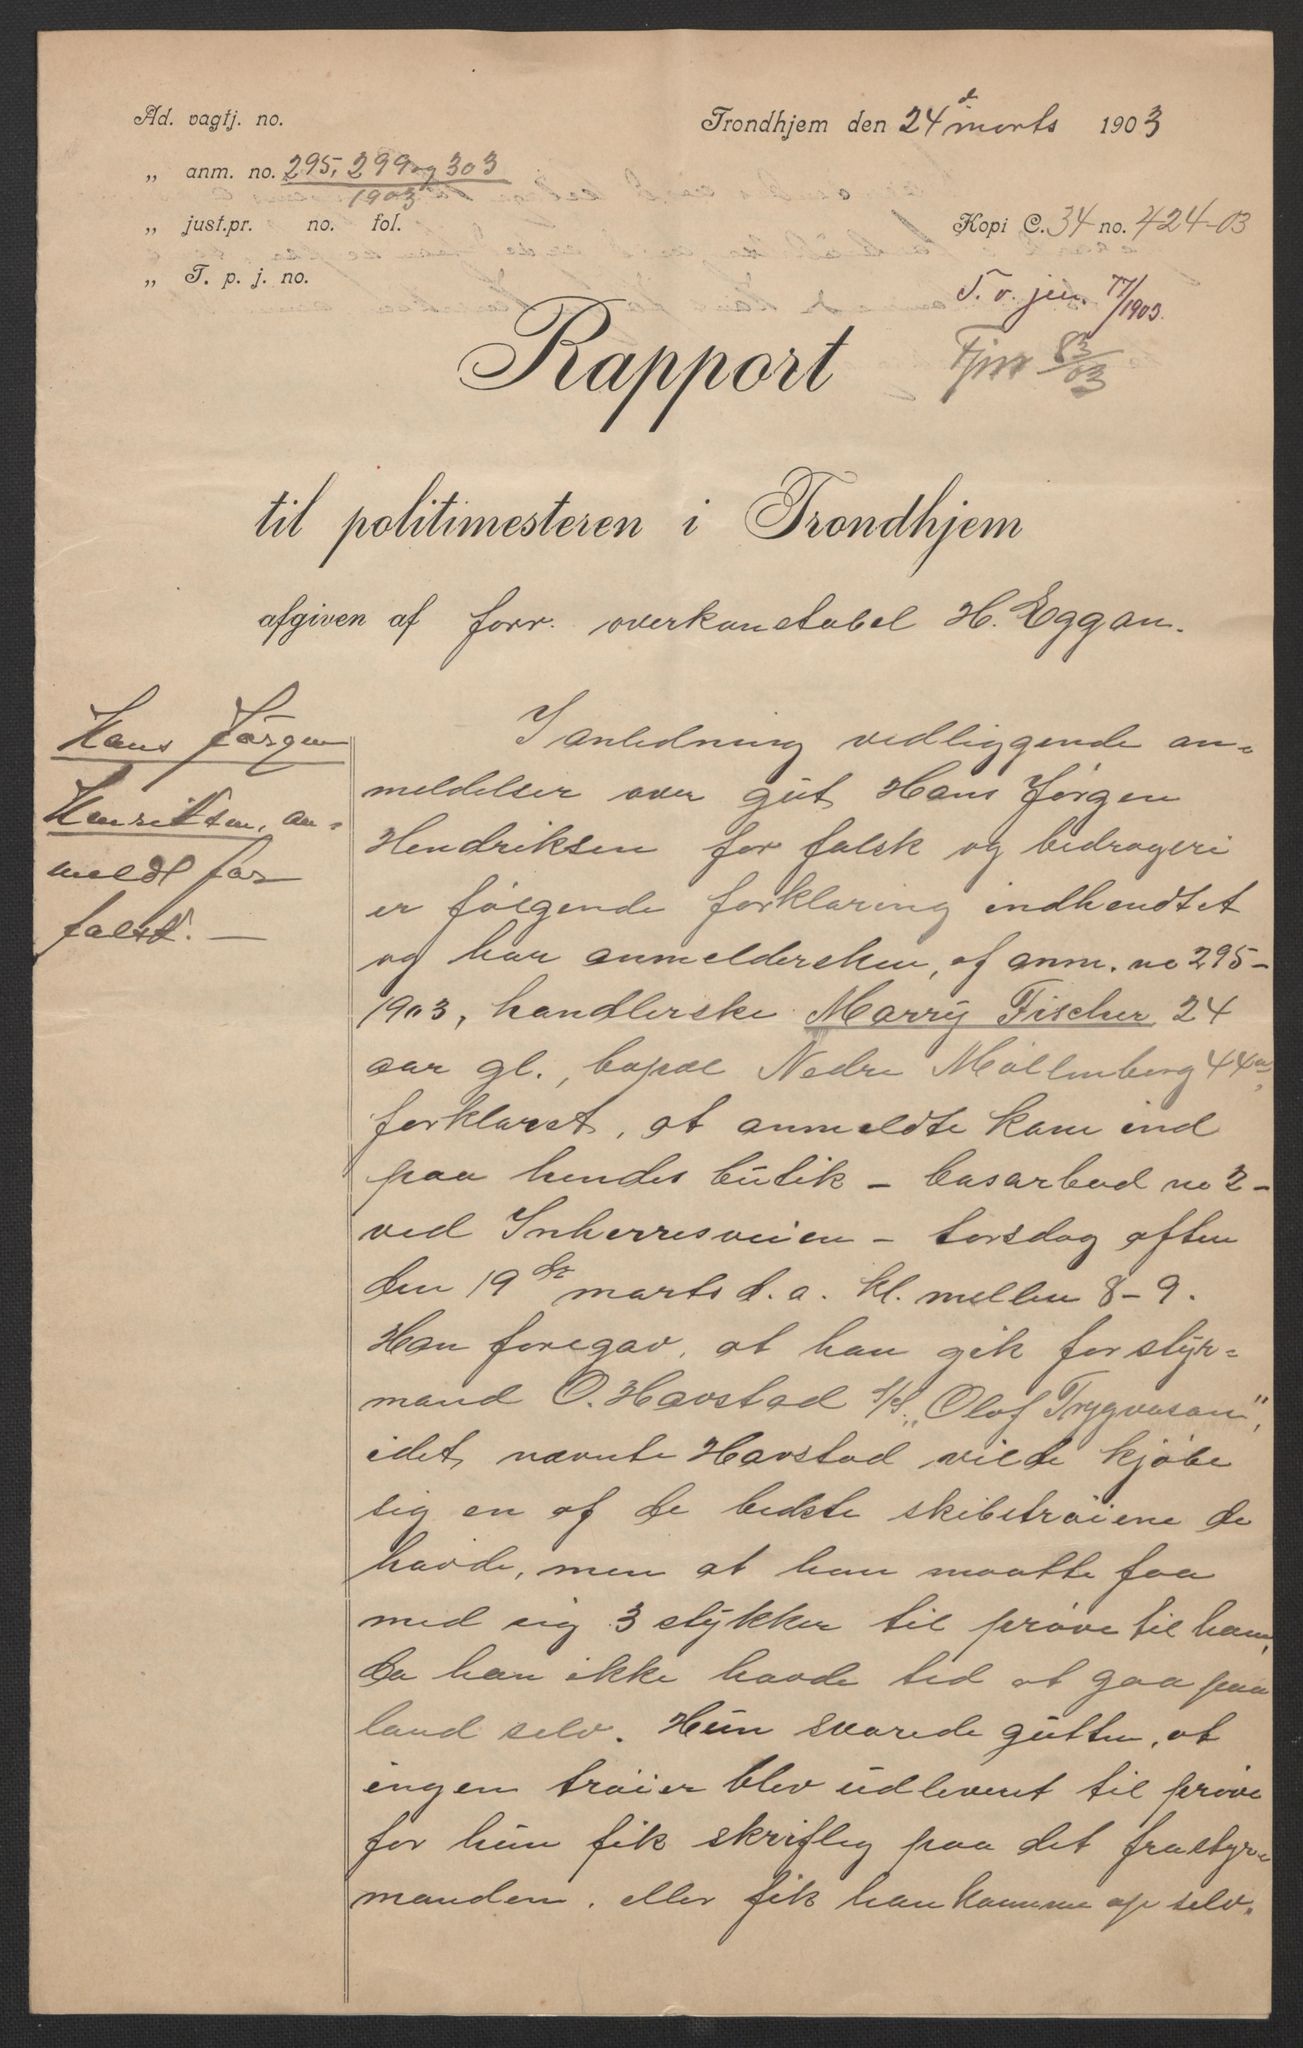 Ad. vagtj. no.
Trondhjem den 24d marts 1903
„ anm. no. 295, 299 og 303
1903
„ just.pr. no. fol.
Kopi C. 34 no. 424-03
„ T. p. j. no.
T. v. jen. 77/1903.
83/03
Rapport
til politimesteren i Trondhjem
afgiven af forr. overkonstabel H. Eggan.
Hans Jörgen
Henriksen, an-
meldt for
falsk. —
I anledning vedliggende an-
meldelser over gut Hans Jørgen
Hendriksen for falsk og bedrageri
er følgende forklaring indhendtet
og har anmeldersken, af anm. no 295-
1903, handlerske Marry Fischer 24
aar gl., bopæl Nedre Møllenberg 44a,
forklaret, at anmeldte kom ind
paa hendes butik - basarbod no 2-
ved Inherresveien - torsdag aften
den 19de marts d. a. kl. mellem 8-9.
Han foregav, at han gik for styr-
mand O. Havstad S/S. „Olaf Trygvason",
idet nævnte Havstad vilde kjøbe
sig en af de bedste skibstrøiene de
havde, men at han maatte faa
med sig 3 stykker til prøve til ham,
da han ikke havde tid at gaa paa
land selv. Hun svarede gutten, at
ingen trøier blev udleveret til prøve
før hun fik skriftlig paa det fra styr-
manden, eller fik han komme op selv.